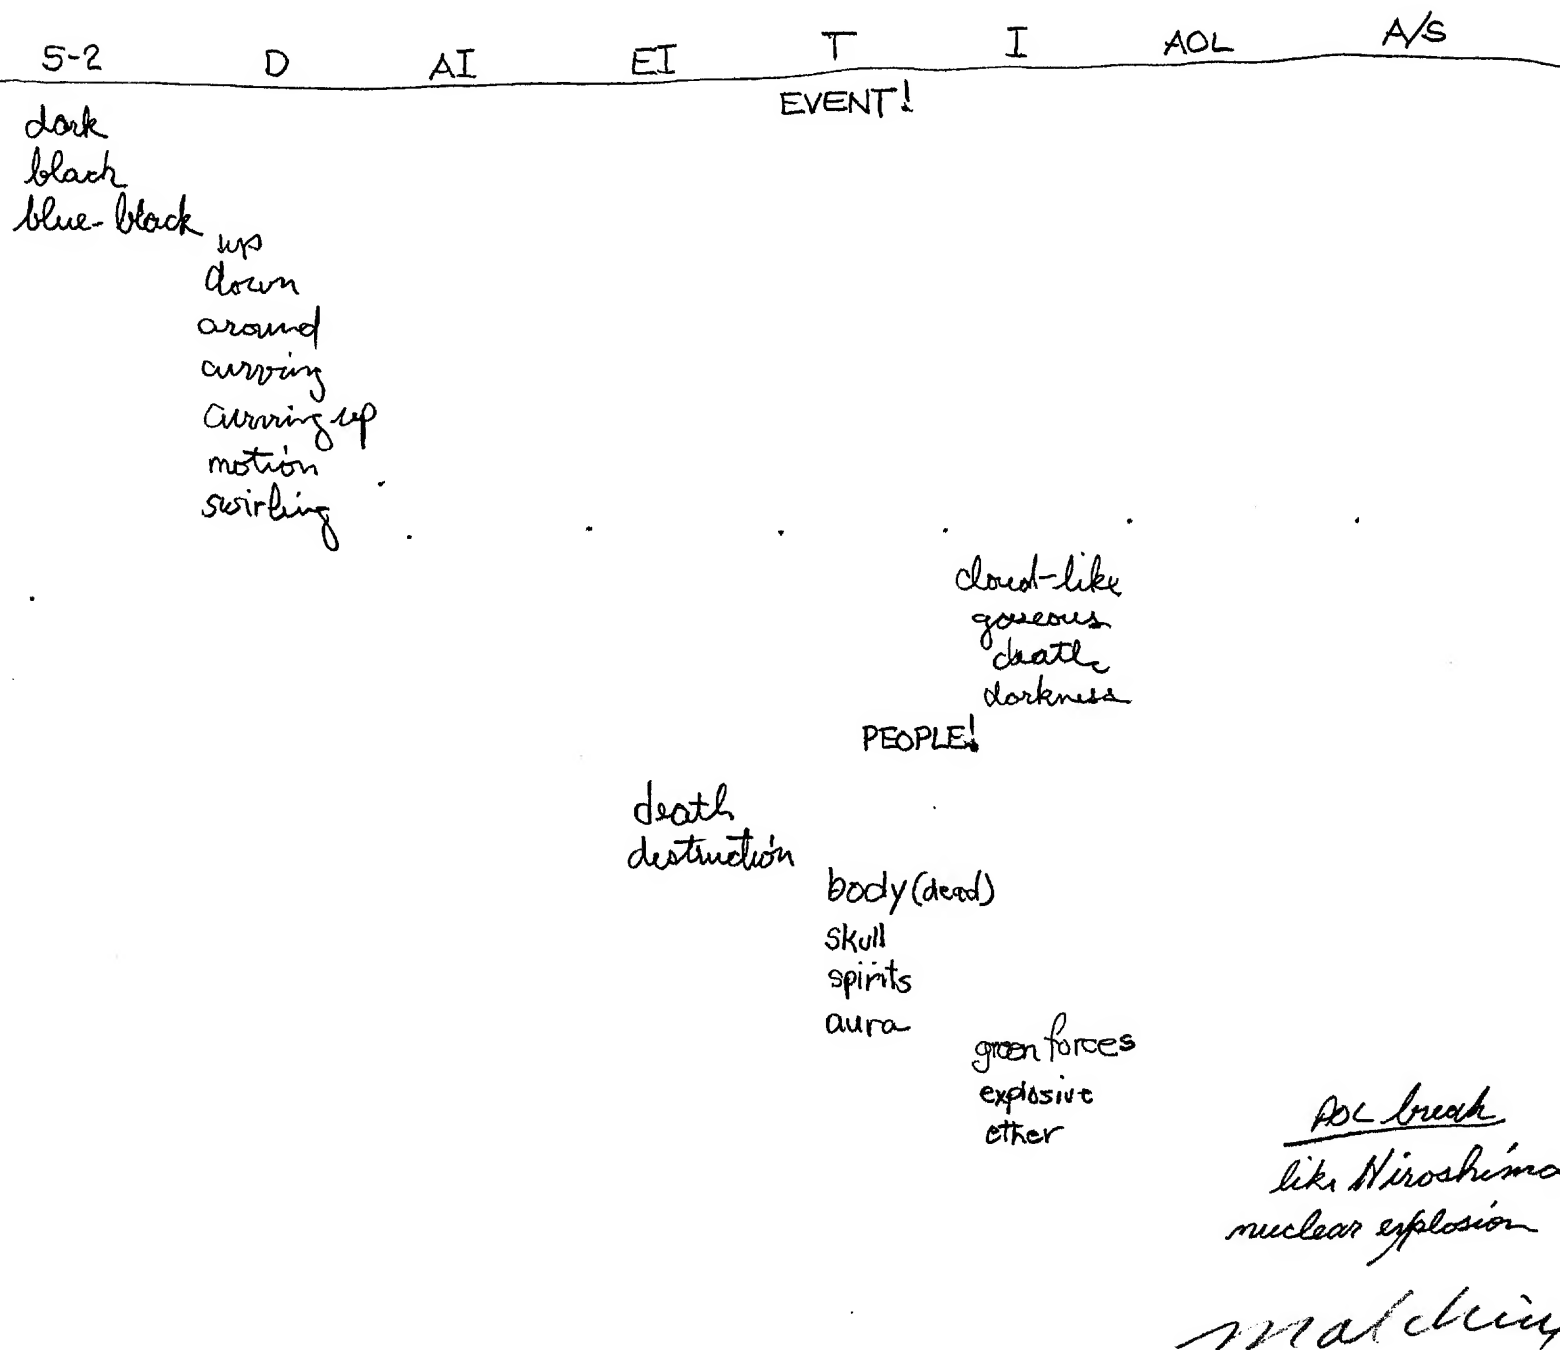 S-2 D AI EI T I AOL A/S
EVENT!
dark
black
blue-black
up
down
around
curving
curving up
motion
swirling
cloud-like
gaseous
death
darkness
PEOPLE!
death
destruction
body (dead)
skull
spirits
aura
green forces
explosive
ether
AOL break
like Hiroshima
nuclear explosion